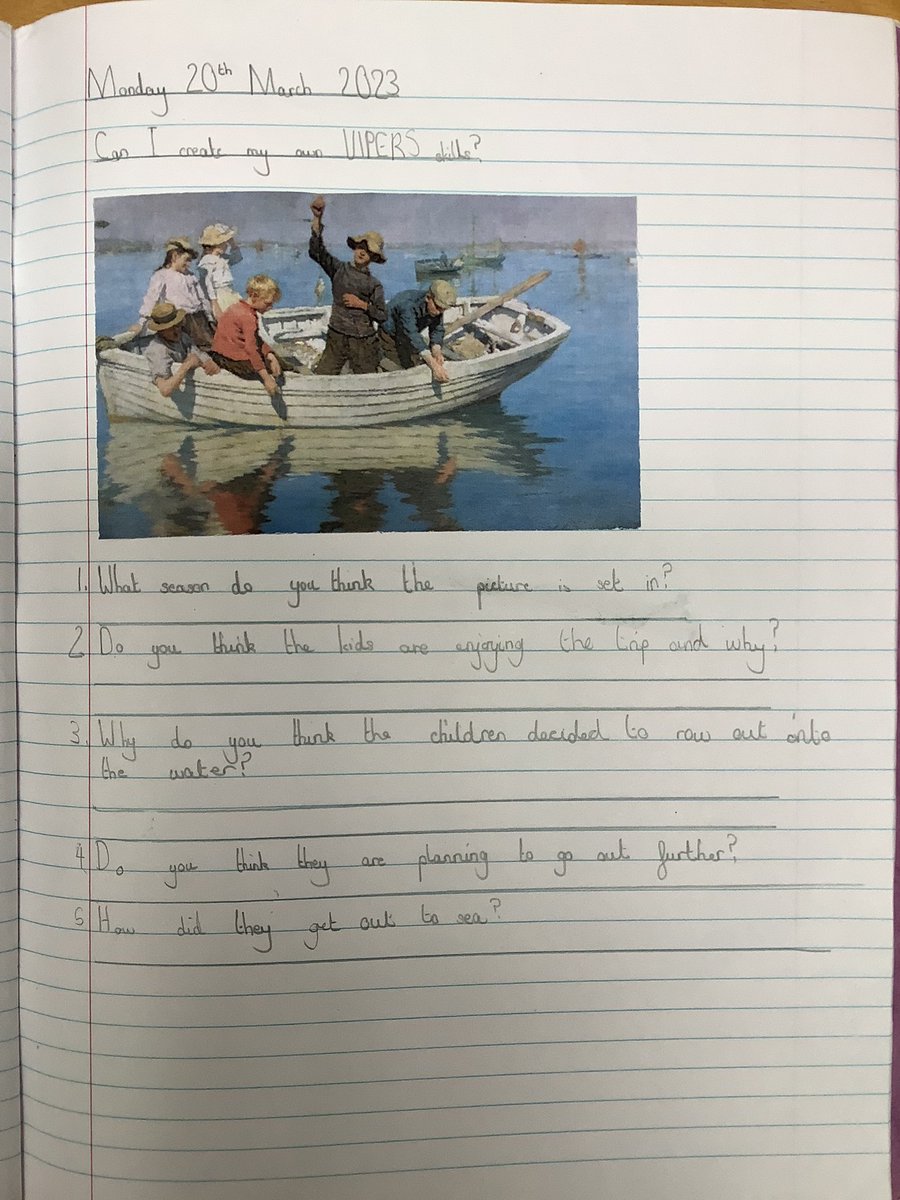 Monday 20th March 2023
Can I create my own VIPERS skills?
1. What season do you think the picture is set in?
2 Do you think the kids are enjoying the trip and why?
3. Why do you think the children decided to row out onto
the water?
4 Do you think they are planning to go out further?
5 How did they get out to sea?